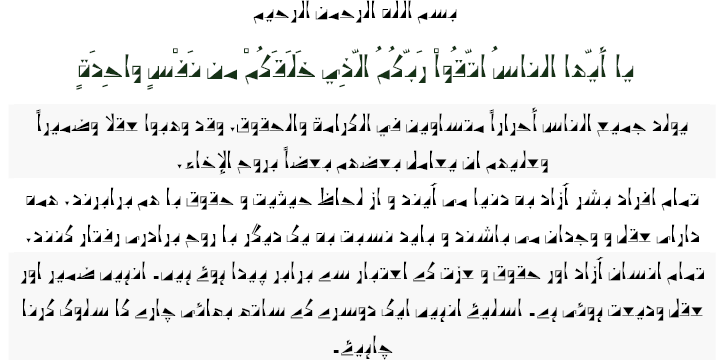 بسم الله الرحمن الرحيم
يا أَيّها الناسُ اتّقُواْ رَبّكُمُ الّذِي خَلَقَكُمْ من نَفْسٍ وَاحِدَةٍ
يولد جميع الناس أحراراً متساوين في الكرامة والحقوق، وقد وهبوا عقلا وضميراً
وعليهم ان يعامل بعضهم بعضاً بروح الإخاء.
تمام افراد بشر آزاد به دنیا می آیند و از لحاظ حیثیت و حقوق با هم برابرند، همه
دارای عقل و وجدان می باشند و باید نسبت به یک دیگر با روح برادری رفتار کنند.
تمام انسان آزاد اور حقوق و عزت کے اعتبار سے برابر پیدا ہوئے ہیں۔ انہیں ضمیر اور
عقل ودیعت ہوئی ہے۔ اسلیئے انہیں ایک دوسرے کے ساتھ بھائی چارے کا سلوک کرنا
چاہیئے۔